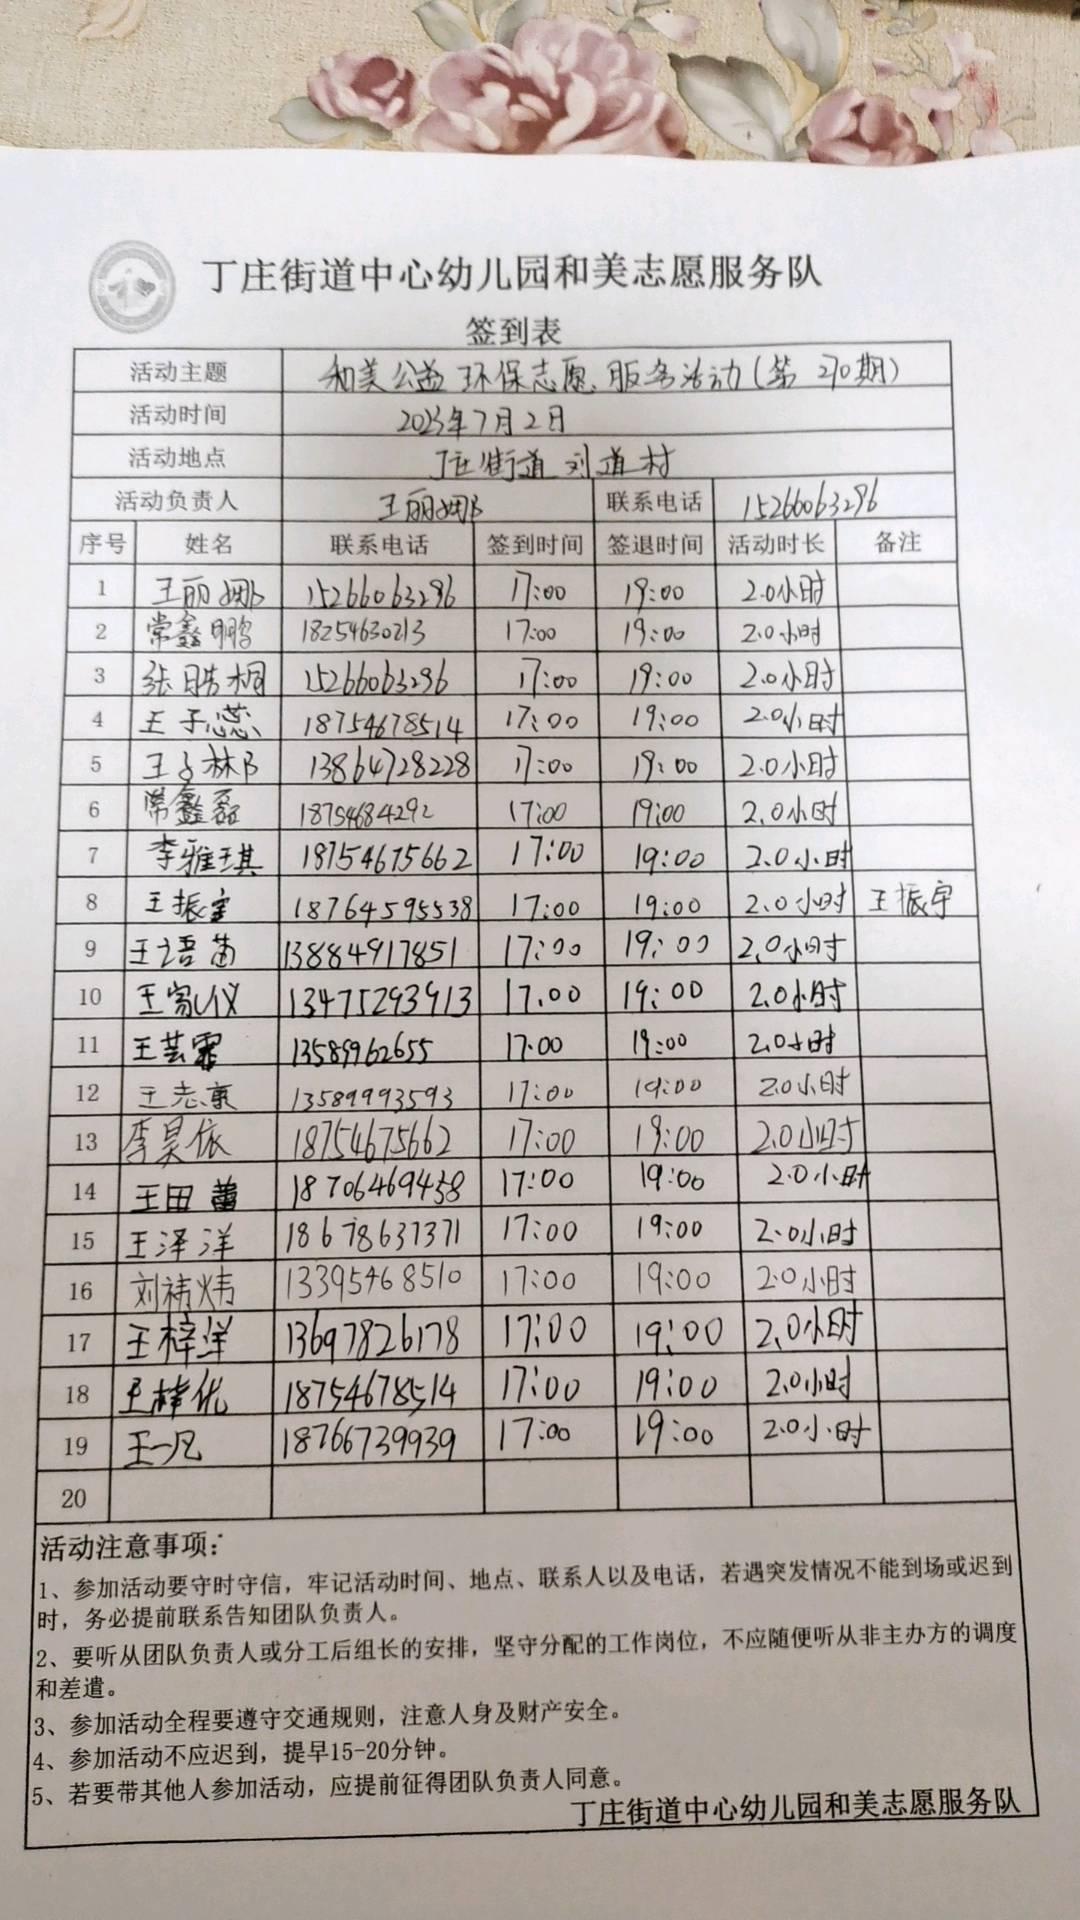 丁庄街道中心幼儿园和美志愿服务队
签到表
活动主题 和美公益环保志愿服务活动(第270期)
活动时间 2023年7月2日
活动地点 丁庄街道刘道村
活动负责人 王丽娜 联系电话 15266063296
序号 姓名 联系电话 签到时间 签退时间 活动时长 备注
1 王丽娜 15266063296 17:00 19:00 2.0小时
2 常鑫鹏 18254630213 17:00 19:00 2.0小时
3 张晧桐 15266063296 17:00 19:00 2.0小时
4 王子蕊 18754678514 17:00 19:00 2.0小时
5 王子林 13864728228 17:00 19:00 2.0小时
6 常鑫磊 18754684292 17:00 19:00 2.0小时
7 李雅琪 18754675662 17:00 19:00 2.0小时
8 王振宇 18764595538 17:00 19:00 2.0小时 王振宇
9 王语苗 13884917851 17:00 19:00 2.0小时
10 王家仪 13475293913 17.00 19:00 2.0小时
11 王芸霏 13589962655 17.00 19:00 2.0小时
12 王志康 13589993593 17:00 19:00 2.0小时
13 李昊依 18754675662 17:00 19:00 2.0小时
14 王田蕾 18706469458 17:00 19:00 2.0小时
15 王泽洋 18678637371 17:00 19:00 2.0小时
16 刘祎炜 13395468510 17:00 19:00 2.0小时
17 王梓洋 13697826178 17:00 19:00 2.0小时
18 王梓优 18754678514 17:00 19:00 2.0小时
19 王一凡 18766739939 17:00 19:00 2.0小时
20
活动注意事项:
1、参加活动要守时守信，牢记活动时间、地点、联系人以及电话，若遇突发情况不能到场或迟到
时，务必提前联系告知团队负责人。
2、要听从团队负责人或分工后组长的安排，坚守分配的工作岗位，不应随便听从非主办方的调度
和差遣。
3、参加活动全程要遵守交通规则，注意人身及财产安全。
4、参加活动不应迟到，提早15-20分钟。
5、若要带其他人参加活动，应提前征得团队负责人同意。
丁庄街道中心幼儿园和美志愿服务队